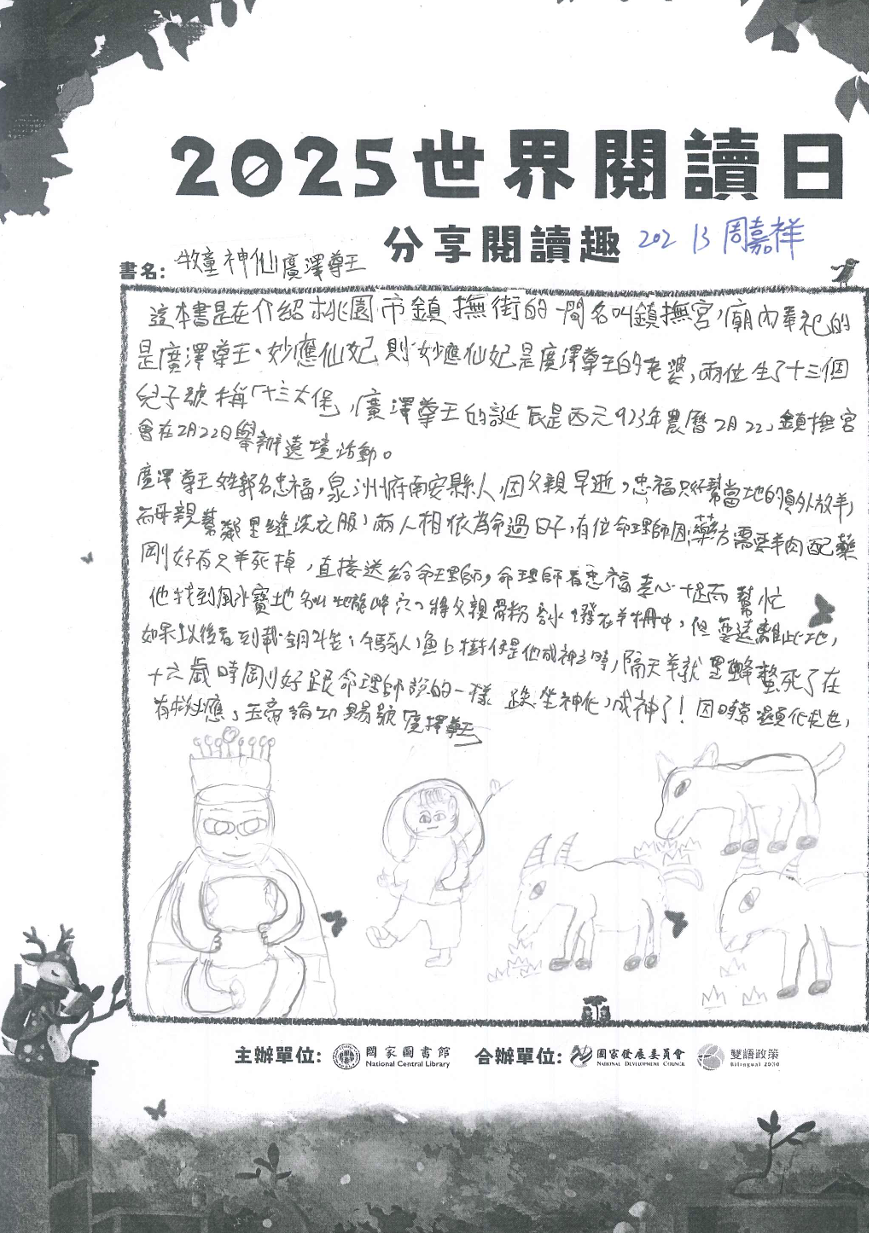 2025世界閱讀日
分享閱讀趣 202 13 周嘉祥
書名: 牧童神仙廣澤尊王
這本書是在介紹桃園市鎮撫街的一間名叫鎮撫宮，廟內奉祀的
是廣澤尊王、妙應仙妃，則妙應仙妃是廣澤尊王的老婆，兩位生了十三個
兒子號稱「十三太保，廣澤尊王的誕辰是西元923年農曆2月22，鎮撫宮
會在2月22日舉辦遶境活動。
廣澤尊王姓郭名忠福，泉洲府南安縣人，因父親早逝，忠福只好幫當地的員外放羊，
而母親幫鄰里縫洗衣服，兩人相依為命過日子，有位命理師因藥方需要羊肉配藥
剛好有只羊死掉，直接送給命理師，命理師看忠福孝心 而幫忙
他找到風水寶地名叫 峰穴，將父親骨粉 水潑在羊柵中，但要遠離此地，
如果以後看到戴銅斗笠，牛騎人，魚上樹 是他成神之時，隔天羊就 黑蜂螫死了在
十六歲時剛好跟命理師說的一樣 坐神化，成神了！因時常
有求必應，玉帝論功賜號廣擇尊王
主辦單位: 國家圖書館 合辦單位: 國家發展委員會 雙語政策
National Central Library NATIONAL DEVELOPMENT COUNCIL Bilingual 2030